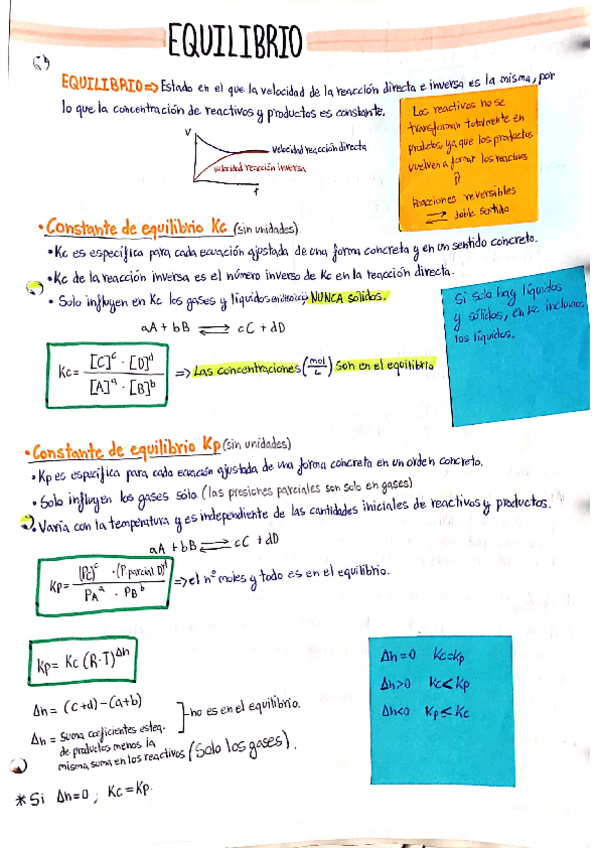 EQUILIBRIO
EQUILIBRIO => Estado en el que la velocidad de la reacción directa e inversa es la misma, por
lo que la concentración de reactivos y productos es constante.
Los reactivos no se
transforman totalmente en
productos, ya que los productos
vuelven a formar los reactivos
Reacciones reversibles
⇄ doble sentido
V
velocidad reacción directa
velocidad reacción inversa
t
• Constante de equilibrio Kc (sin unidades)
• Kc es específica para cada ecuación ajustada de una forma concreta y en un sentido concreto.
• Kc de la reacción inversa es el número inverso de Kc en la reacción directa.
• Solo influyen en Kc los gases y líquidos en disolució NUNCA sólidos.
aA + bB ⇄ cC + dD
Kc = [C]^c · [D]^d / [A]^a · [B]^b => Las concentraciones (mol/L) son en el equilibrio
Si solo hay líquidos
y sólidos, en Kc incluimos
los líquidos.
• Constante de equilibrio Kp (sin unidades)
• Kp es específica para cada ecuación ajustada de una forma concreta en un orden concreto.
• Solo influyen los gases sólo (las presiones parciales son solo en gases)
• Varía con la temperatura y es independiente de las cantidades iniciales de reactivos y productos.
aA + bB ⇄ cC + dD
Kp = (Pc)^c · (P parcial D)^d / PA^a · PB^b => el nº moles y todo es en el equilibrio.
Kp = Kc (R·T)^Δn
Δn = (c+d) - (a+b)
Δn = suma coeficientes esteq.
de productos menos la
misma suma en los reactivos (Solo los gases).
- no es en el equilibrio.
* Si Δn=0 ; Kc = Kp.
Δn = 0 Kc=Kp
Δn>0 Kc<Kp
Δn<0 Kp≤Kc